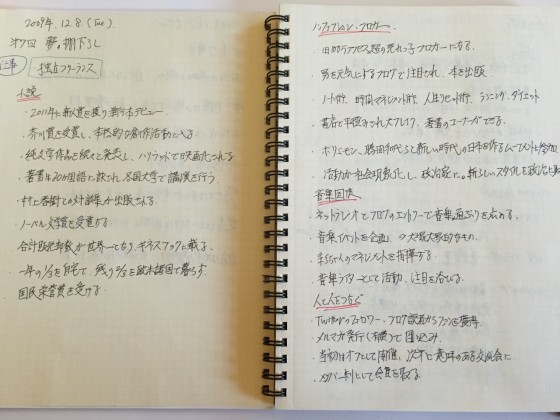 2009年, 12.8 (Tue)
第7回 夢の棚下ろし
仕事 独占フリーランス
小説
・2011年に新人賞を獲り華々しくデビュー.
・芥川賞を受賞し、本格的な創作活動に入る.
・純文学作品を続々と発表し、ハリウッドで映画化される
・著書は20か国語に訳され、各国大学で講演を行う.
・村上春樹との対談集が出版される.
・ノーベル文学賞を受賞する
合計販売部数が世界一となり、ギネスブックに載る.
・一年の1/3を自宅で、残り2/3を欧米諸国で暮らす.
国民栄誉賞を受ける.
ノンフィクション・ブロガー.
・1日10万アクセス超の売れっ子ブロガーになる.
・男を元気にするブログで注目され、本を出版.
・ノート術、時間マネジメント術、人生リセット術、ランニング、ダイエット
・書店で平積みされ大ブレイク、著書のコーナーができる.
・ホリエモン、勝間和代らと新しい時代の日本を作るムーブメントに参加
・活動が社会現象化し、政治家に。新しいスタイルを政治に
音楽関係
・ネットラジオとブログのエントリーで音楽通ぶりを広める.
・音楽イベントを企画し、
・マネジメントを指揮する.
・音楽ライターとして活動、注目を浴びる.
人と人をつなぐ
・Twitterのフォロワー、ブログ読者からファンを獲得
・メルマガ発行(有償)で囲い込み.
・当初はオフとして開催、次第に意味のある交流会に
・メンバー制として会費を取る.